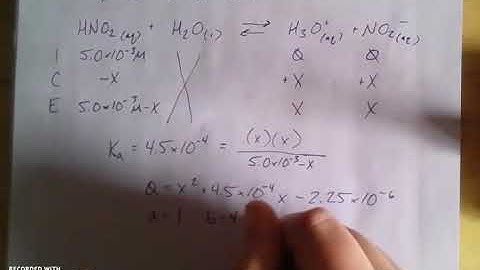 HNO₂(aq) + H₂O(l) ⇌ H₃O⁺(aq) + NO₂⁻(aq)
I 5.0×10⁻³M 0 0
C -X +X +X
E 5.0×10⁻³M-X X X
Ka = 4.5×10⁻⁴ = (x)(x) / 5.0×10⁻³-x
0 = x² + 4.5×10⁻⁴x - 2.25×10⁻⁶
a = 1 b = 4
RECORDED WITH